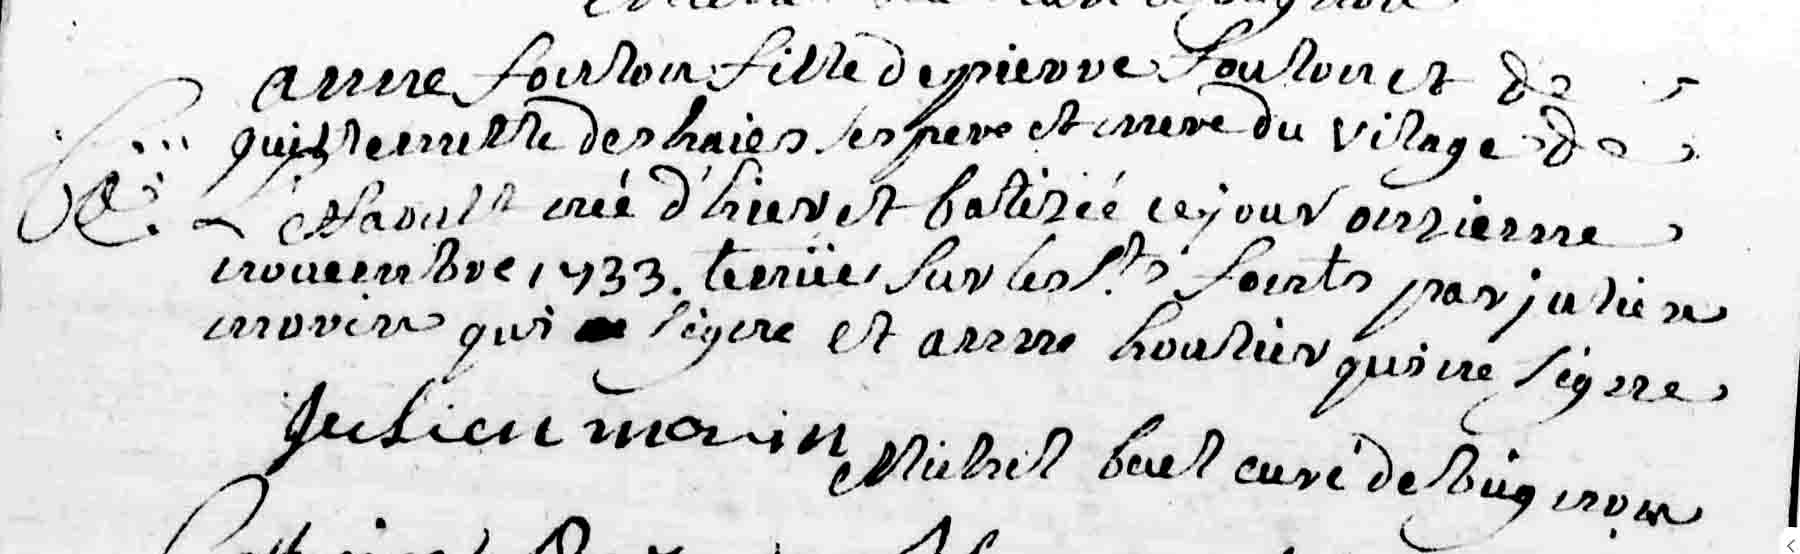 anne foulon fille de pierre foulon et de
guillemette des haies ses pere et mere du vilage de
née d'hier et batizée ce jour onzieme
nouembre 1733. tenüe sur les Sts fonts par julien
morin qui signe et anne houlier qui ne signe
Julien morin
Michel buet curé de buignon